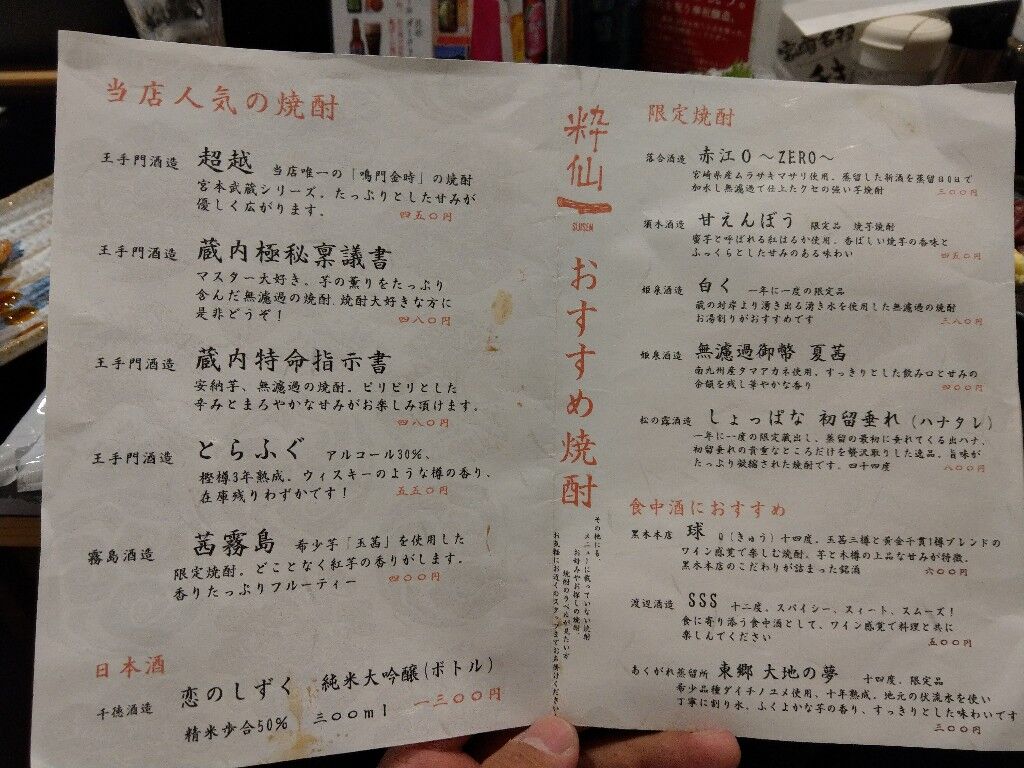 当店人気の焼酎
王手門酒造 超越 当店唯一の「鳴門金時」の焼酎
宮本武蔵シリーズ。たっぷりとした甘みが
優しく広がります。 四五〇円
王手門酒造 蔵内極秘稟議書
マスター大好き。芋の薫りをたっぷり
含んだ無濾過の焼酎。焼酎大好きな方に
是非どうぞ! 四八〇円
王手門酒造 蔵内特命指示書
安納芋、無濾過の焼酎。ピリピリとした
辛みとまろやかな甘みがお楽しみ頂けます。
四八〇円
王手門酒造 とらふぐ アルコール30%、
樫樽3年熟成。ウィスキーのような樽の香り、
在庫残りわずかです! 五五〇円
霧島酒造 茜霧島 希少芋「玉茜」を使用した
限定焼酎。どことなく紅芋の香りがします。
香りたっぷりフルーティー 四〇〇円
日本酒
千徳酒造 恋のしずく 純米大吟醸(ボトル)
精米歩合50% 三〇〇ml 一三〇〇円
粋仙
SUISEN
おすすめ焼酎
その他にも、
メニューに載っていない焼酎
お好みやお探しの焼酎、
焼酎のラベルが見たい方
お気軽にお近くのスタッフまでお声掛けください。
限定焼酎
落合酒造 赤江0 〜ZERO〜
宮崎県産ムラサキマサリ使用。蒸留した新酒を蒸留
加水し無濾過で仕上たクセの強い芋焼酎 三〇〇円
須木酒造 甘えんぼう 限定品 焼芋焼酎
蜜芋と呼ばれる紅はるか使用。香ばしい焼芋の香味と
ふっくらとした甘みのある味わい 四五〇円
姫泉酒造 白く 一年に一度の限定品
蔵の対岸より湧き出る湧き水を使用した無濾過の焼酎
お湯割りがおすすめです 三八〇円
姫泉酒造 無濾過御幣 夏茜
南九州産タマアカネ使用。すっきりとした飲み口と甘みの
余韻を残し華やかな香り 四〇〇円
松の露酒造 しょっぱな 初留垂れ(ハナタレ)
一年に一度の限定蔵出し、蒸留の最初に垂れてくる出ハナ、
初留垂れの貴重なところだけを贅沢取りした逸品。旨味が
たっぷり凝縮された焼酎です。四十四度 八〇〇円
食中酒におすすめ
黒木本店 球 Q(きゅう)十四度。玉茜二樽と黄金千貫1樽ブレンドの
ワイン感覚で楽しむ焼酎。芋と木樽の上品な甘みが特徴。
黒木本店のこだわりが詰まった銘酒 六〇〇円
渡辺酒造 SSS 十二度。スパイシー、スィート、スムーズ!
食に寄り添う食中酒として、ワイン感覚で料理と共に
楽しんでください 五〇〇円
あくがれ蒸留所 東郷 大地の夢 十四度。限定品
希少品種ダイチノユメ使用、十年熟成。地元の伏流水を使い
丁寧に割り水。ふくよかな芋の香り、すっきりとした味わいです
三〇〇円